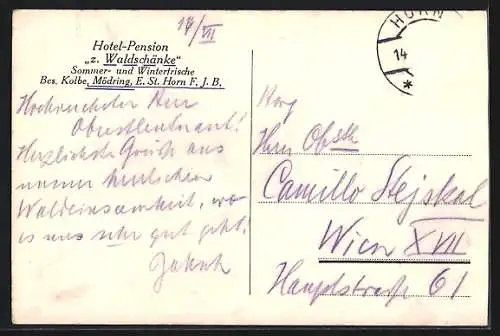 14/VII
HORN
14
Hotel-Pension
„z. Waldschänke"
Sommer- und Winterfrische
Bes. Kolbe, Mödring, E. St. Horn F. J. B.
Hochverehrter Herr
Oberstleutnant!
Herzlichste Grüße aus
unserer
Waldeinsamkeit, wo
es uns sehr gut geht!
Herrn Obstlt
Camillo Stejskal
Wien XVII
Hauptstraße 61